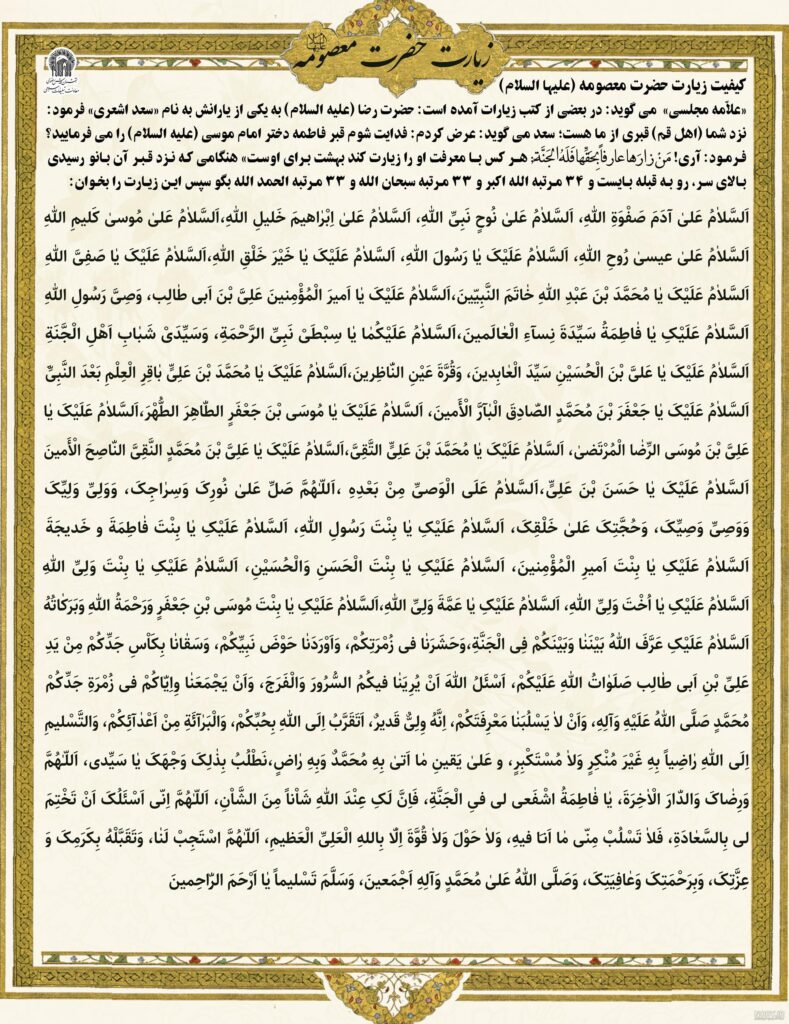 زیارت حضرت معصومه
کیفیت زیارت حضرت معصومه (علیها السلام)
«علاّمه مجلسی» می گوید: در بعضی از کتب زیارات آمده است: حضرت رضا (علیه السلام) به یکی از یارانش به نام «سعد اشعری» فرمود:
نزد شما (اهل قم) قبری از ما هست؛ سعد می گوید: عرض کردم: فدایت شوم قبر فاطمه دختر امام موسی (علیه السلام) را می فرمایید؟
فرمـود: آری! مَنْ زارَها عارِفاً بِحَقِّها فَلَهُ الْجَنَّةُ؛ هـر کس بـا معرفت او را زیارت کند بهشت برای اوست» هنگامی که نزد قبـر آن بـانو رسیدی
بـالای سـر، رو بـه قبلـه بـایست و ۳۴ مـرتبه الله اکبر و ۳۳ مـرتبه سبحان الله و ۳۳ مـرتبه الحمد الله بگو سپس این زیارت را بخوان:
اَلسَّلاٰمُ عَلیٰ آدَمَ صَفْوَةِ اللهِ، اَلسَّلاٰمُ عَلیٰ نُوحٍ نَبِیِّ اللهِ، اَلسَّلاٰمُ عَلیٰ اِبْرٰاهیمَ خَلیلِ اللهِ،اَلسَّلاٰمُ عَلیٰ مُوسیٰ کَلیمِ اللهِ
اَلسَّلاٰمُ عَلیٰ عیسیٰ رُوحِ اللهِ، اَلسَّلاٰمُ عَلَیْکَ یٰا رَسُولَ اللهِ، اَلسَّلاٰمُ عَلَیْکَ یٰا خَیْرَ خَلْقِ اللهِ،اَلسَّلاٰمُ عَلَیْکَ یٰا صَفِیَّ اللهِ
اَلسَّلاٰمُ عَلَیْکَ یٰا مُحَمَّدَ بْنَ عَبْدِ اللهِ خٰاتَمَ النَّبِیّینَ،اَلسَّلاٰمُ عَلَیْکَ یٰا اَمیرَ الْمُؤْمِنینَ عَلِیَّ بْنَ اَبی طٰالِبٍ، وَصِیَّ رَسُولِ اللهِ
اَلسَّلاٰمُ عَلَیْکِ یٰا فٰاطِمَةُ سَیِّدَةَ نِسآءِ الْعٰالَمینَ،اَلسَّلاٰمُ عَلَیْکُمٰا یٰا سِبْطَیْ نَبِیِّ الرَّحْمَةِ، وَسَیِّدَیْ شَبٰابِ اَهْلِ الْجَنَّةِ
اَلسَّلاٰمُ عَلَیْکَ یٰا عَلِیَّ بْنَ الْحُسَیْنِ سَیِّدَ الْعٰابِدینَ، وَقُرَّةَ عَیْنِ النّٰاظِرینَ،اَلسَّلاٰمُ عَلَیْکَ یٰا مُحَمَّدَ بْنَ عَلِیٍّ بٰاقِرَ الْعِلْمِ بَعْدَ النَّبِیِّ
اَلسَّلاٰمُ عَلَیْکَ یٰا جَعْفَرَ بْنَ مُحَمَّدٍ الصّٰادِقَ الْبٰآرَّ الْأَمینَ، اَلسَّلاٰمُ عَلَیْکَ یٰا مُوسَی بْنَ جَعْفَرٍ الطّٰاهِرَ الطُّهْرَ،اَلسَّلاٰمُ عَلَیْکَ یٰا
عَلِیَّ بْنَ مُوسَی الرِّضَا الْمُرْتَضیٰ، اَلسَّلاٰمُ عَلَیْکَ یٰا مُحَمَّدَ بْنَ عَلِیٍّ التَّقِیَّ،اَلسَّلاٰمُ عَلَیْکَ یٰا عَلِیَّ بْنَ مُحَمَّدٍ النَّقِیَّ النّٰاصِحَ الْأَمینَ
اَلسَّلاٰمُ عَلَیْکَ یٰا حَسَنَ بْنَ عَلِیٍّ،اَلسَّلاٰمُ عَلَی الْوَصِیِّ مِنْ بَعْدِهِ ،اَللّٰهُمَّ صَلِّ عَلیٰ نُورِکَ وَسِرٰاجِکَ، وَوَلِیِّ وَلِیِّکَ
وَوَصِیِّ وَصِیِّکَ، وَحُجَّتِکَ عَلیٰ خَلْقِکَ، اَلسَّلاٰمُ عَلَیْکِ یٰا بِنْتَ رَسُولِ اللهِ، اَلسَّلاٰمُ عَلَیْکِ یٰا بِنْتَ فٰاطِمَةَ و خَدیجَةَ
اَلسَّلاٰمُ عَلَیْکِ یٰا بِنْتَ اَمیرِ الْمُؤْمِنینَ، اَلسَّلاٰمُ عَلَیْکِ یٰا بِنْتَ الْحَسَنِ وَالْحُسَیْنِ، اَلسَّلاٰمُ عَلَیْکِ یٰا بِنْتَ وَلِیِّ اللهِ
اَلسَّلاٰمُ عَلَیْکِ یٰا اُخْتَ وَلِیِّ اللهِ، اَلسَّلاٰمُ عَلَیْکِ یٰا عَمَّةَ وَلِیِّ اللهِ،اَلسَّلاٰمُ عَلَیْکِ یٰا بِنْتَ مُوسَی بْنِ جَعْفَرٍ وَرَحْمَةُ اللهِ وَبَرَکٰاتُهُ
اَلسَّلاٰمُ عَلَیْکِ عَرَّفَ اللهُ بَیْنَنٰا وَبَیْنَکُمْ فِی الْجَنَّةِ،وَحَشَرَنٰا فی زُمْرَتِکُمْ، وَاَوْرَدَنٰا حَوْضَ نَبِیِّکُمْ، وَسَقٰانٰا بِکَأْسِ جَدِّکُمْ مِنْ یَدِ
عَلِیِّ بْنِ اَبی طٰالِبٍ صَلَوٰاتُ اللهِ عَلَیْکُمْ، اَسْئَلُ اللهَ اَنْ یُرِیَنٰا فیکُمُ السُّرُورَ وَالْفَرَجَ، وَاَنْ یَجْمَعَنٰا وَاِیّٰاکُمْ فی زُمْرَةِ جَدِّکُمْ
مُحَمَّدٍ صَلَّی اللهُ عَلَیْهِ وَآلِهِ، وَاَنْ لاٰ یَسْلُبَنٰا مَعْرِفَتَکُمْ، اِنَّهُ وَلِیٌّ قَدیرٌ، اَتَقَرَّبُ اِلَی اللهِ بِحُبِّکُمْ، وَالْبَرٰآئَةِ مِنْ اَعْدٰآئِکُمْ، وَالتَّسْلیمِ
اِلَی اللهِ رٰاضِیاً بِهِ غَیْرَ مُنْکِرٍ وَلاٰ مُسْتَکْبِرٍ، و عَلیٰ یَقینِ مٰا اَتیٰ بِهِ مُحَمَّدٌ وَبِهِ رٰاضٍ،نَطْلُبُ بِذٰلِکَ وَجْهَکَ یٰا سَیِّدی، اَللّٰهُمَّ
وَرِضٰاکَ وَالدّٰارَ الْاٰخِرَةَ، یٰا فٰاطِمَةُ اشْفَعی لی فیِ الْجَنَّةِ، فَاِنَّ لَکِ عِنْدَ اللهِ شَأْناً مِنَ الشَّأْنِ، اَللّٰهُمَّ اِنّی اَسْئَلُکَ اَنْ تَخْتِمَ
لی بِالسَّعٰادَةِ، فَلاٰ تَسْلُبْ مِنّی مٰا اَنَا فیهِ، وَلاٰ حَوْلَ وَلاٰ قُوَّةَ اِلّا بِاللهِ الْعَلِیِّ الْعَظیمِ، اَللّٰهُمَّ اسْتَجِبْ لَنٰا، وَتَقَبَّلْهُ بِکَرَمِکَ وَ
عِزَّتِکَ، وَبِرَحْمَتِکَ وَعٰافِیَتِکَ، وَصَلَّی اللهُ عَلیٰ مُحَمَّدٍ وَآلِهِ اَجْمَعینَ، وَسَلَّمَ تَسْلیماً یٰا اَرْحَمَ الرّٰاحِمینَ